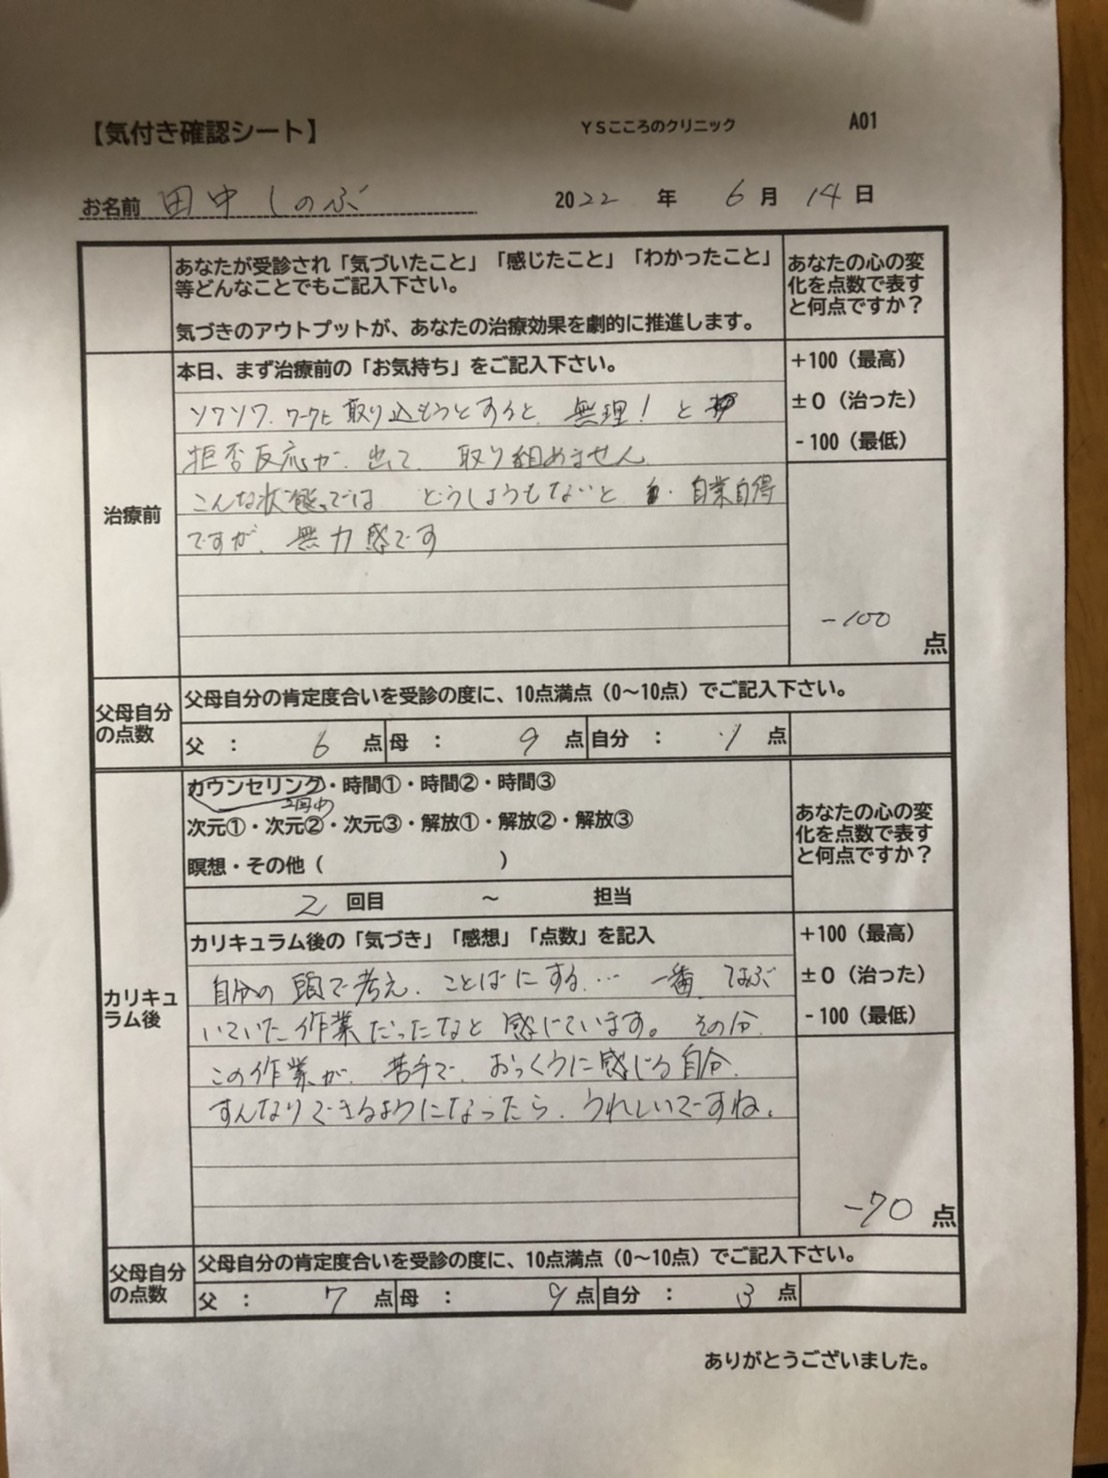 【気付き確認シート】 YSこころのクリニック A01
お名前 田中しのぶ 2022 年 6 月 14 日
あなたが受診され「気づいたこと」「感じたこと」「わかったこと」
等どんなことでもご記入下さい。
気づきのアウトプットが、あなたの治療効果を劇的に推進します。
あなたの心の変
化を点数で表す
と何点ですか？
治療前
本日、まず治療前の「お気持ち」をご記入下さい。
ソワソワ. ワークに取り込もうとすると、無理！と
拒否反応が、出て、取り組めません
こんな状態では どうしようもないと 自業自得
ですが、無力感です
+100（最高）
±0（治った）
-100（最低）
-100 点
父母自分
の点数
父母自分の肯定度合いを受診の度に、10点満点（0～10点）でご記入下さい。
父 ： 6 点 母 ： 9 点 自分 ： 1 点
カリキュ
ラム後
カウンセリング・時間①・時間②・時間③
次元①・次元②・次元③・解放①・解放②・解放③
瞑想・その他（ ）
2 回目 ～ 担当
あなたの心の変
化を点数で表す
と何点ですか？
カリキュラム後の「気づき」「感想」「点数」を記入
自分の頭で考え、ことばにする… 一番、さぶ
いていた作業だったなと感じています。その分、
この作業が、苦手で、おっくうに感じる自分、
すんなりできるようになったら、うれしいですね。
+100（最高）
±0（治った）
-100（最低）
-70 点
父母自分
の点数
父母自分の肯定度合いを受診の度に、10点満点（0～10点）でご記入下さい。
父 ： 7 点 母 ： 9 点 自分 ： 3 点
ありがとうございました。